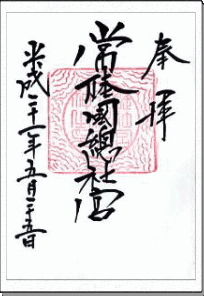 奉拝
常陸國總社宮
平成二十一年五月二十五日